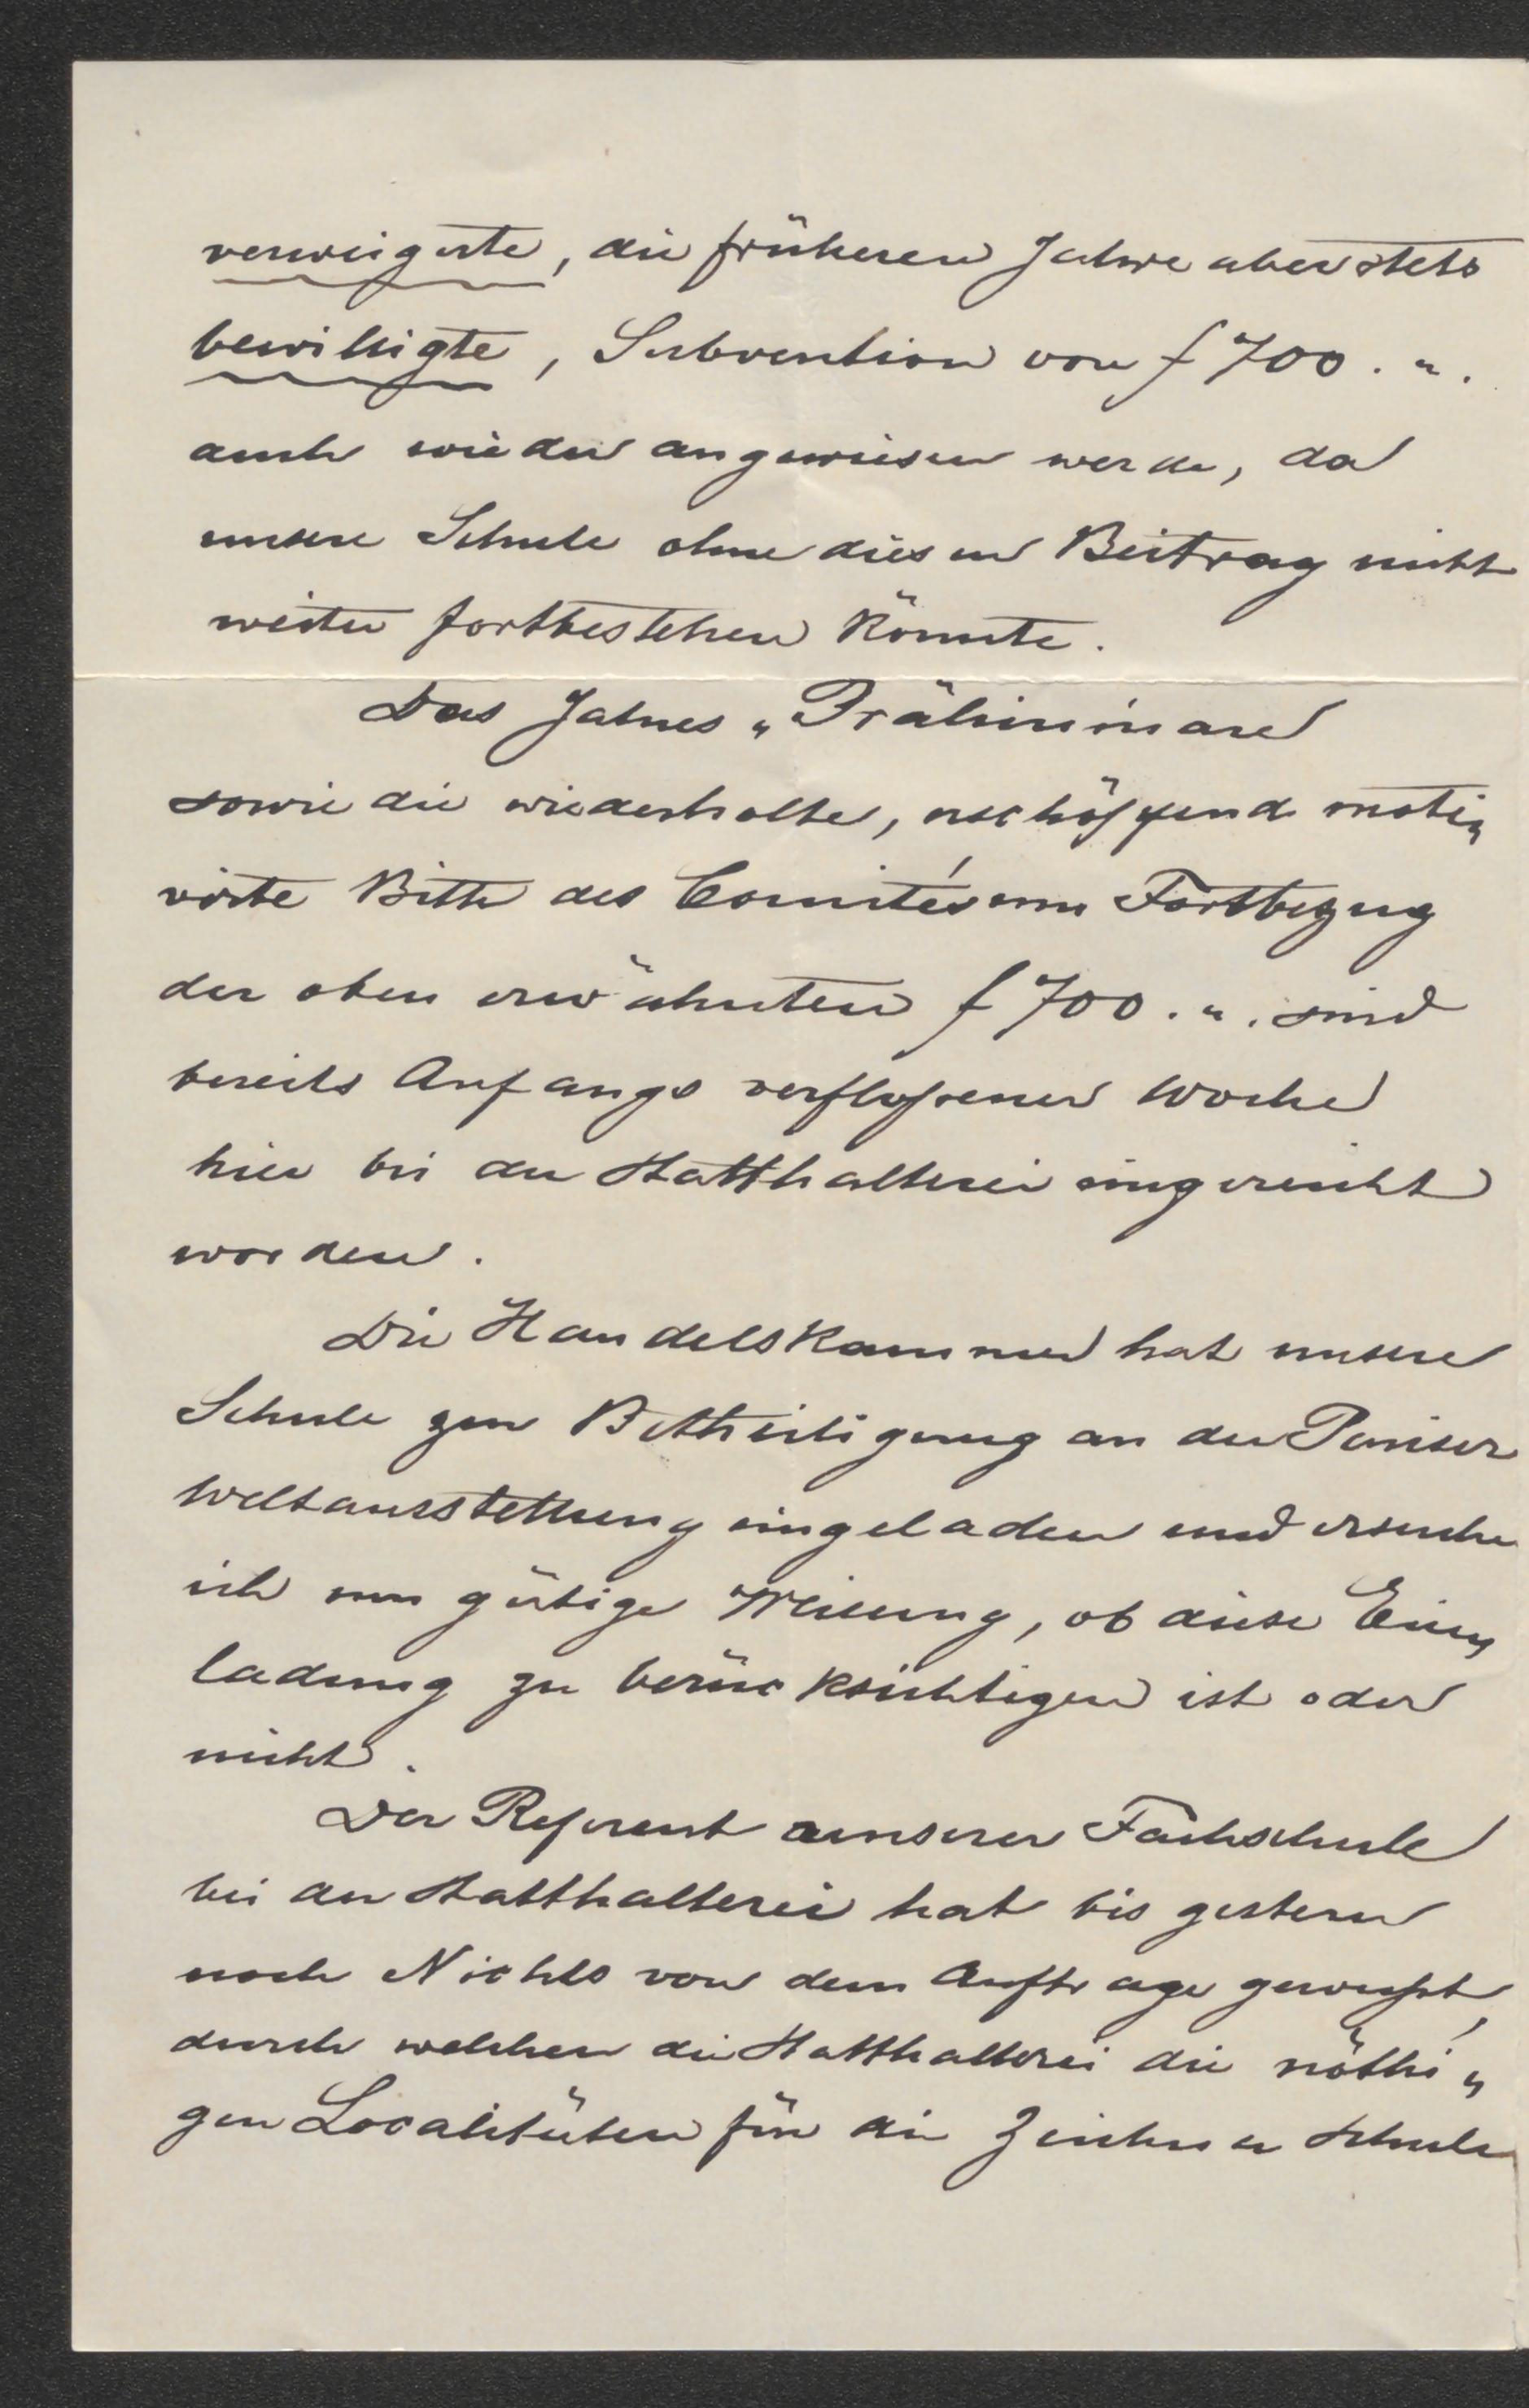 verweigerte, die früheren Jahre aber stets
bewilligte, Subvention von f 700. „.
auch wieder angewiesen werde, da
unsere Schule ohne diesen Beitrag nicht
weiter fortbestehen könnte.
Das Jahres „Präliminare
sowie die wiederholte, erschöpfend moti„
virte Bitte des Comités um Fortbezug
der oben erwähnten f 700. „. sind
bereits Anfangs verflossener Woche
hier bei der Statthalterei eingereicht
worden.
Die Handelskammer hat unsere
Schule zur Betheiligung an der Pariser
Weltausstellung eingeladen und ersuche
ich um gütige Weisung, ob diese Ein„
ladung zu berücksichtigen ist oder
nicht.
Der Referent unserer Fachschule
bei der Statthalterei hat bis gestern
noch Nichts von dem Auftrage gewusst,
durch welchen die Statthalterei die nöthi„
gen Localitäten für die Zeichner Schule